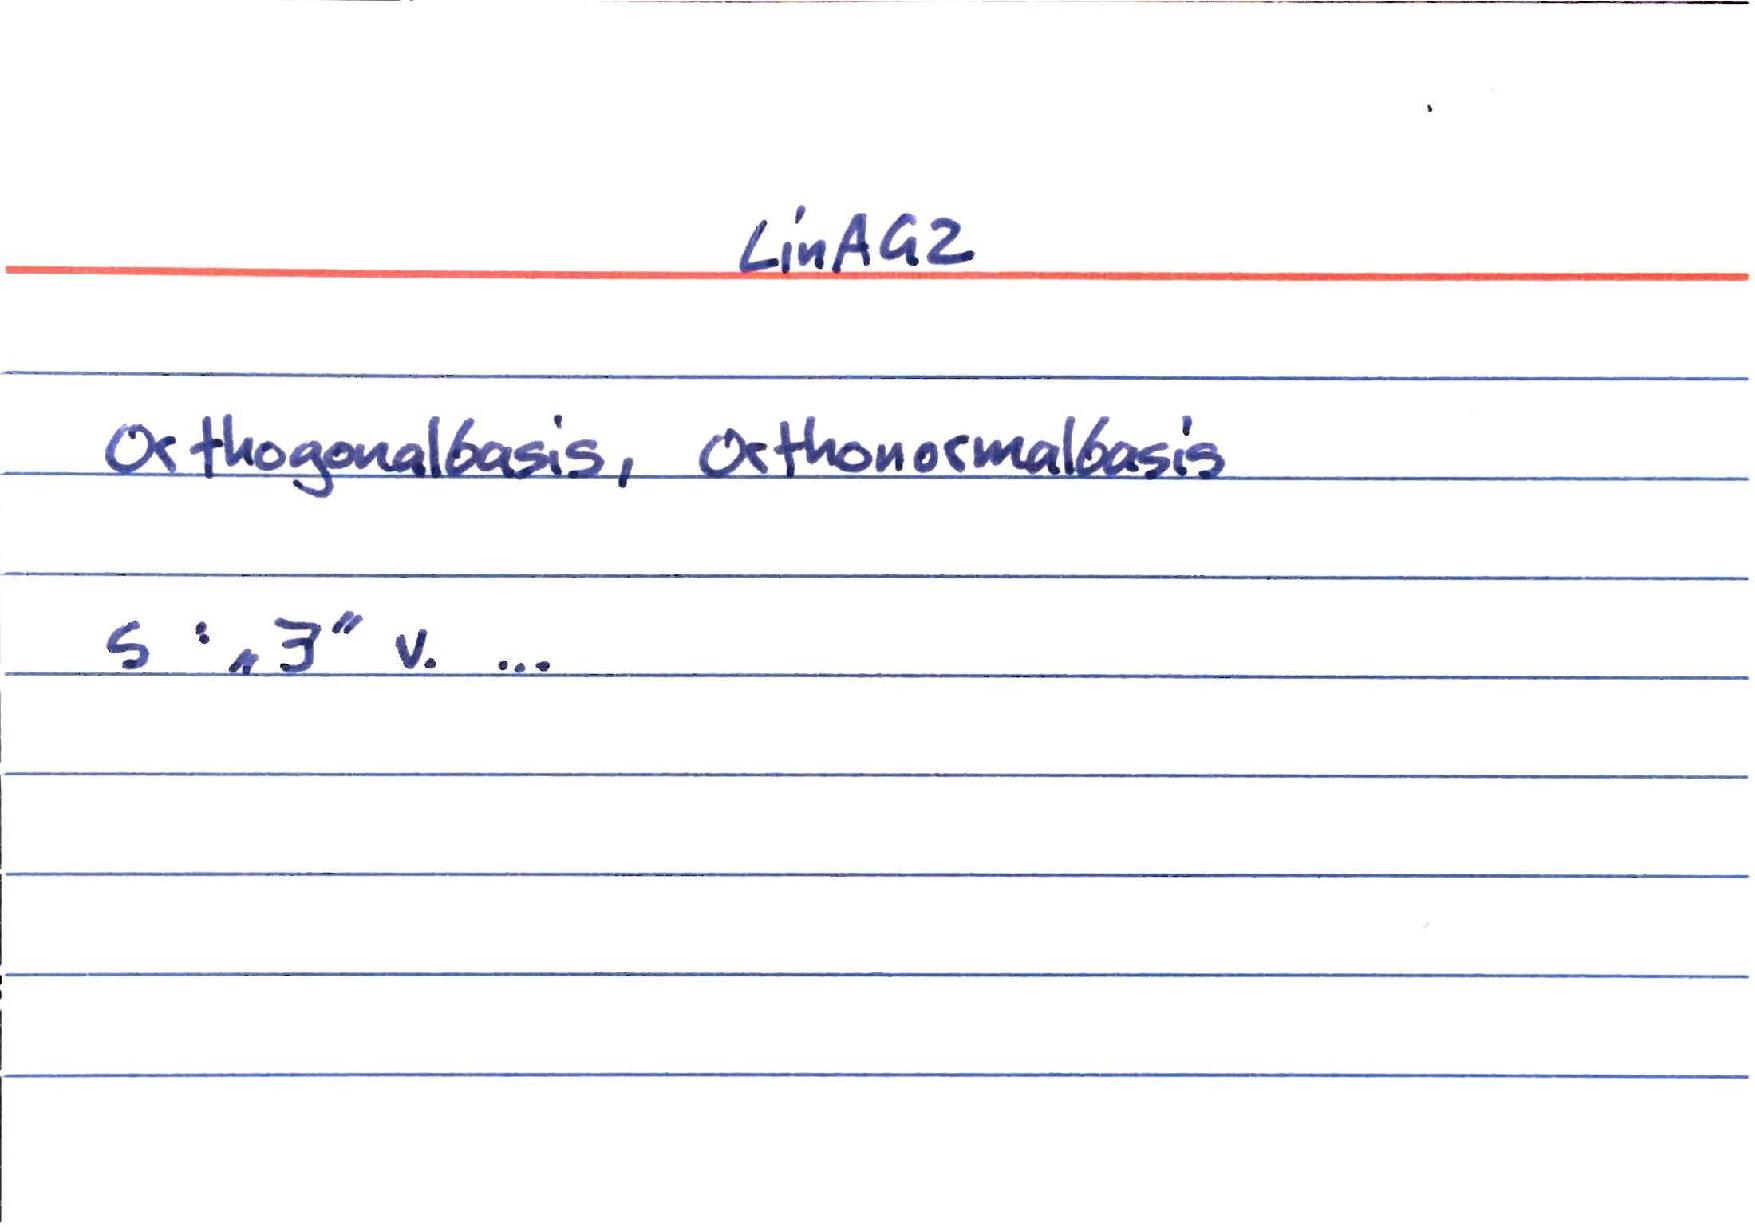 LinAG2
Orthogonalbasis, Orthonormalbasis
S : „∃“ v. ...